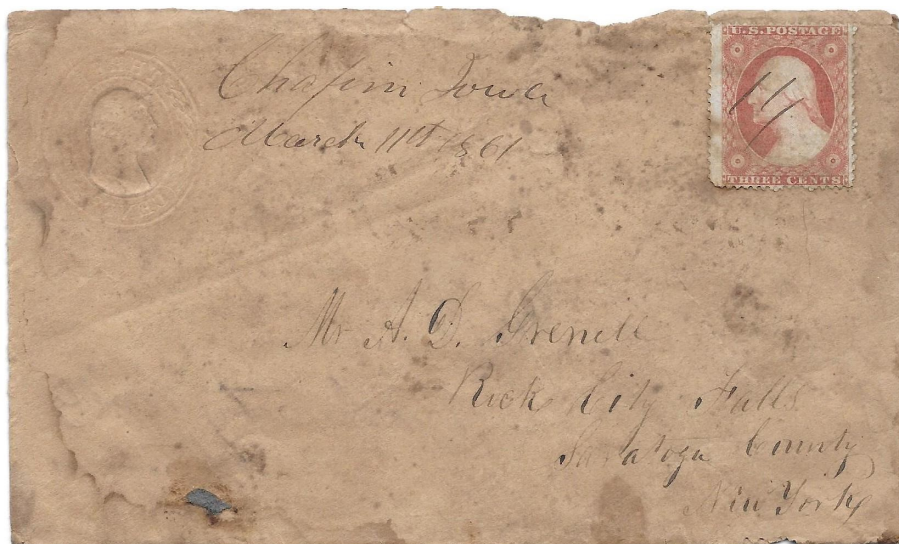 Chapin Iowa
March 11th 1861
U.S. POSTAGE
THREE CENTS
Mr A. D. Grenell
Rock City Falls
Saratoga County
New York